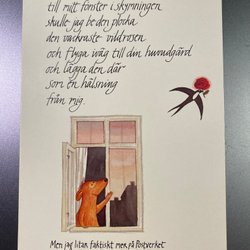 till mitt fönster i skymningen
skulle jag be den plocka
den vackraste vildrosen
och flyga iväg till din huvudgärd
och lägga den där
som en hälsning
från mig.
Men jag litar faktiskt mer på Postverket